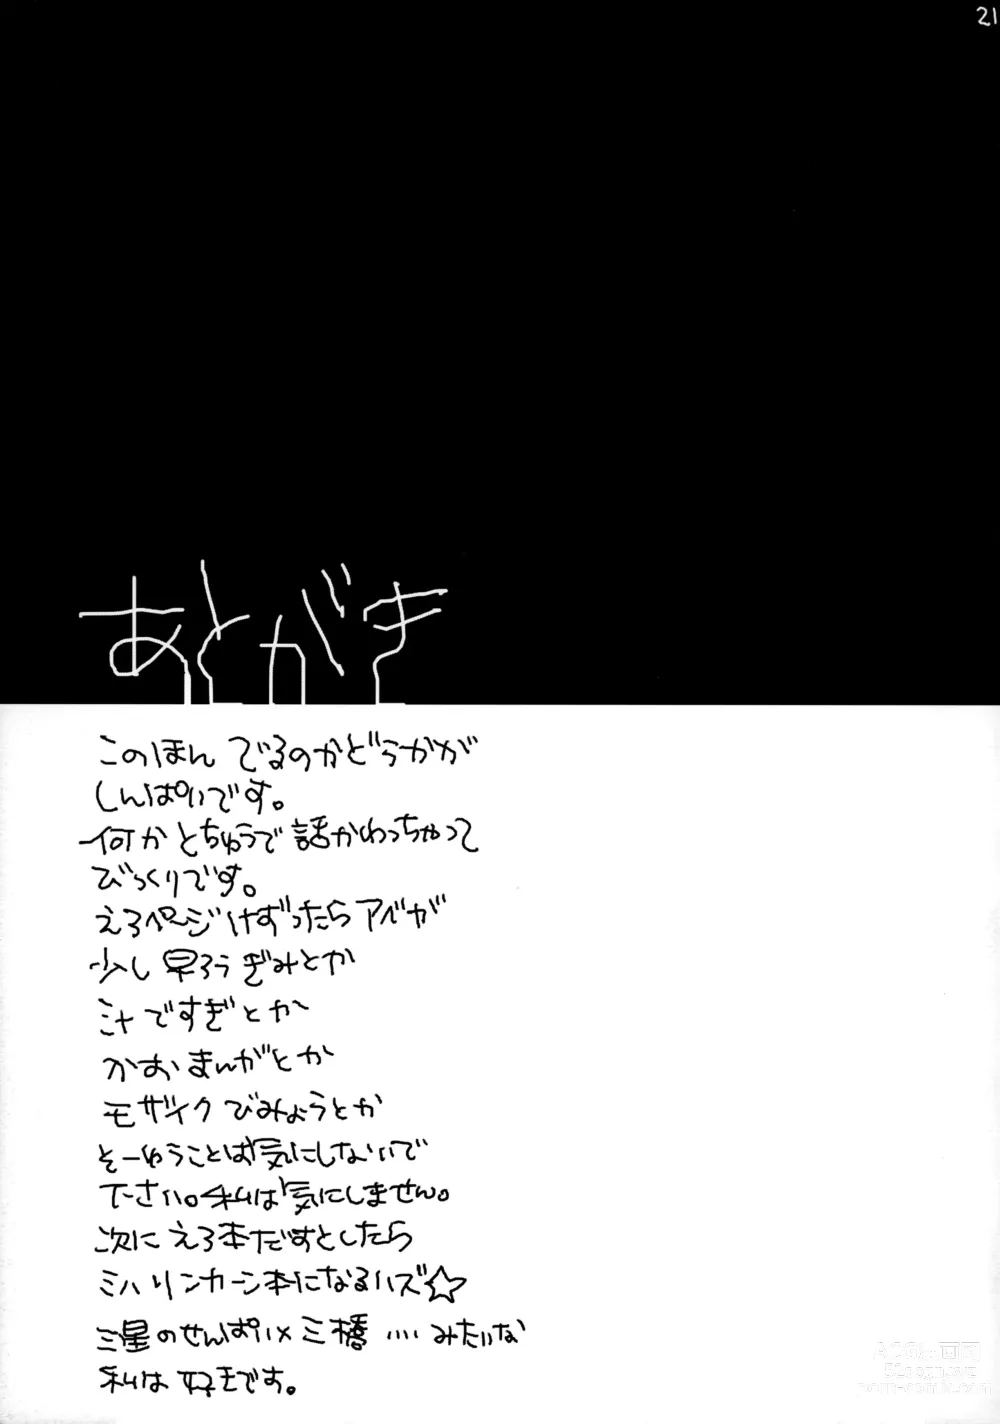 21
あとがき
このほん でるのかどうかが
しんぱいです。
何か とちゅうで 話かわっちゃって
びっくりです。
えろページけずったらアベが
少し 早ろう ぎみとか
汁ですぎとか
かおまんがとか
モザイク びみょうとか
そーゆうことは気にしないで
下さい。私は気にしません。
次に えろ本だすとしたら
ミハリンカーン本になるハズ☆
三星のせんぱい×三橋....みたいな
私は 好きです。